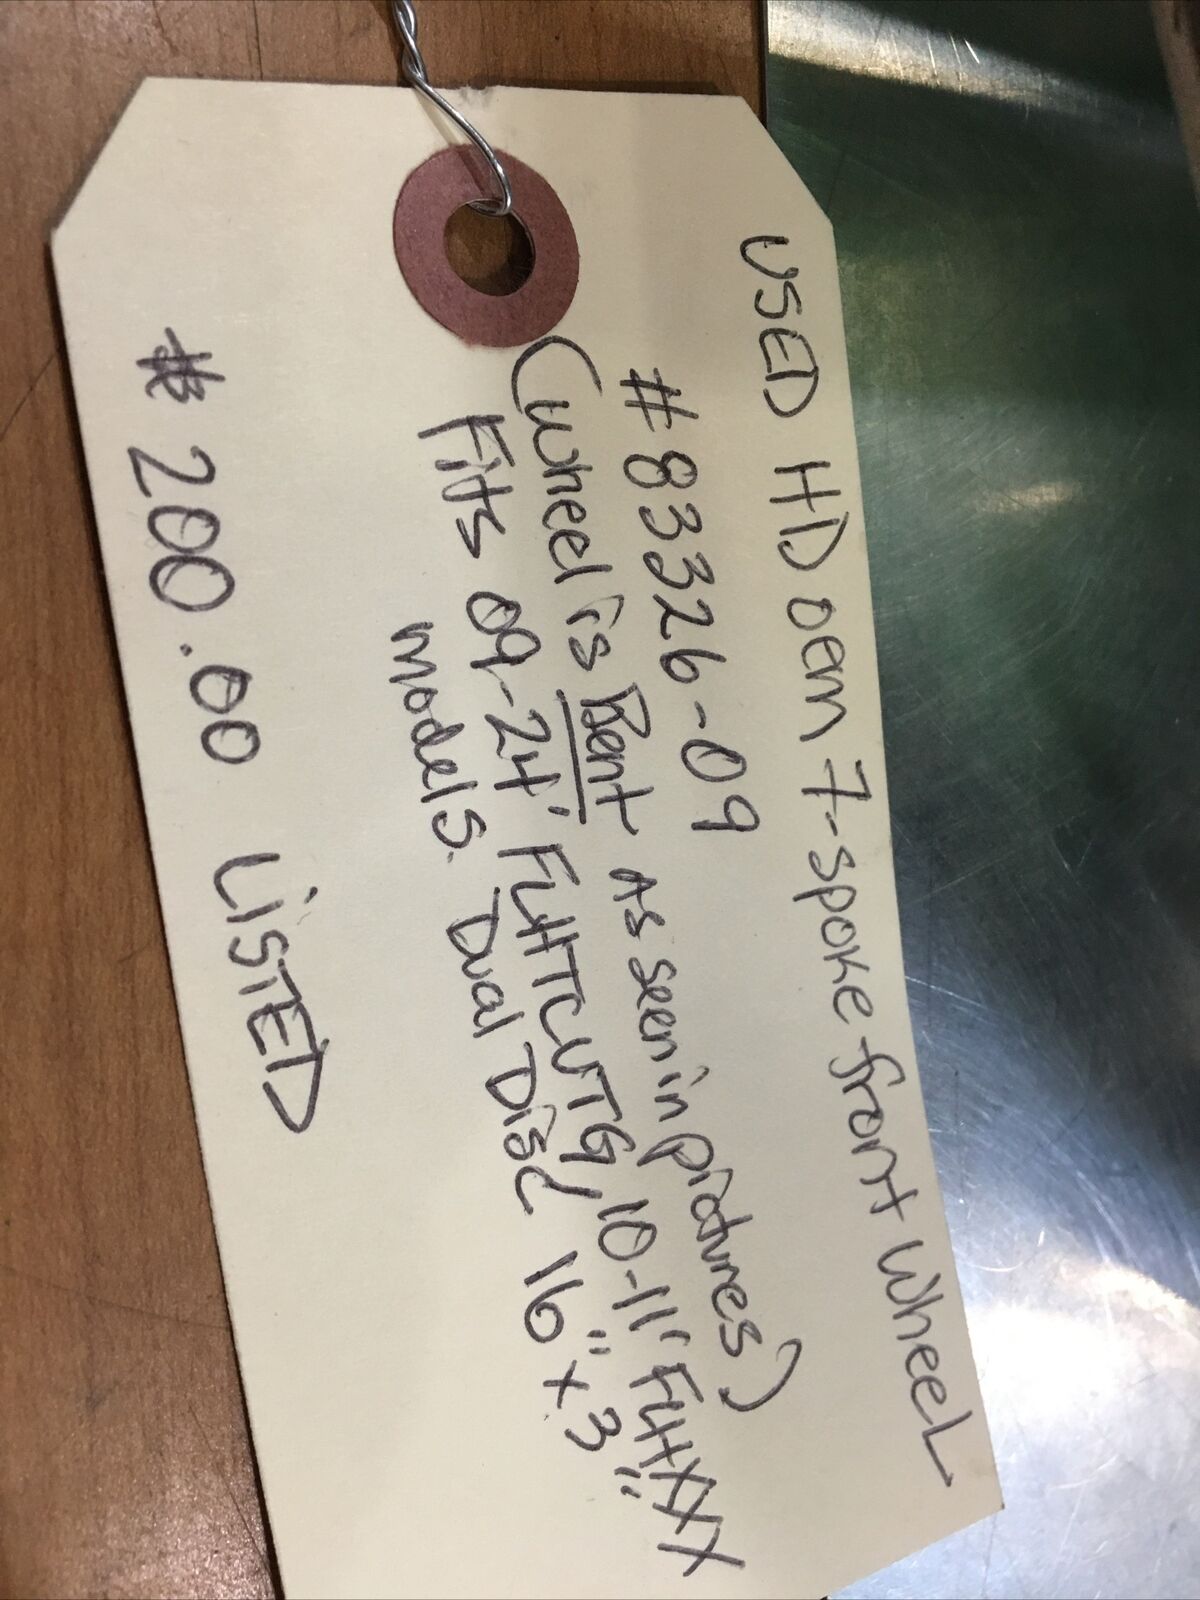 USED HD oem 7-spoke front wheel
#83326-09
(wheel is Bent as seen in pictures)
Fits 09-24' FLHTCUTG/10-11' FLHXXX
models. Dual Disc 16" x 3"
$200.00 LISTED